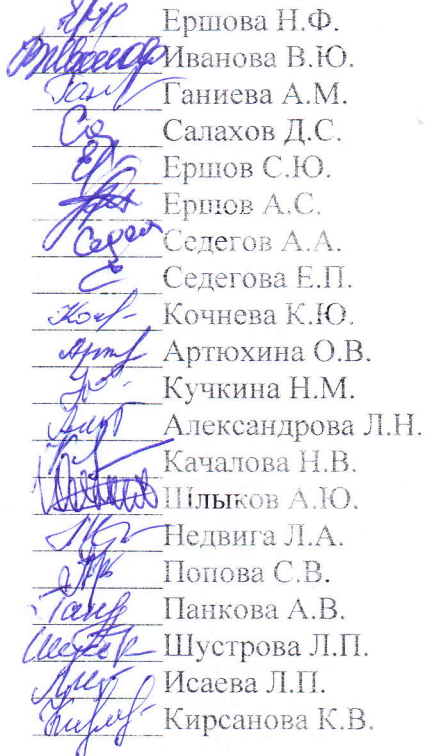 Ершова Н.Ф.
Иванова В.Ю.
Ганиева А.М.
Салахов Д.С.
Ершов С.Ю.
Ершов А.С.
Седегов А.А.
Седегова Е.П.
Кочнева К.Ю.
Артюхина О.В.
Кучкина Н.М.
Александрова Л.Н.
Качалова Н.В.
Шлыков А.Ю.
Недвига Л.А.
Попова С.В.
Панкова А.В.
Шустрова Л.П.
Исаева Л.П.
Кирсанова К.В.